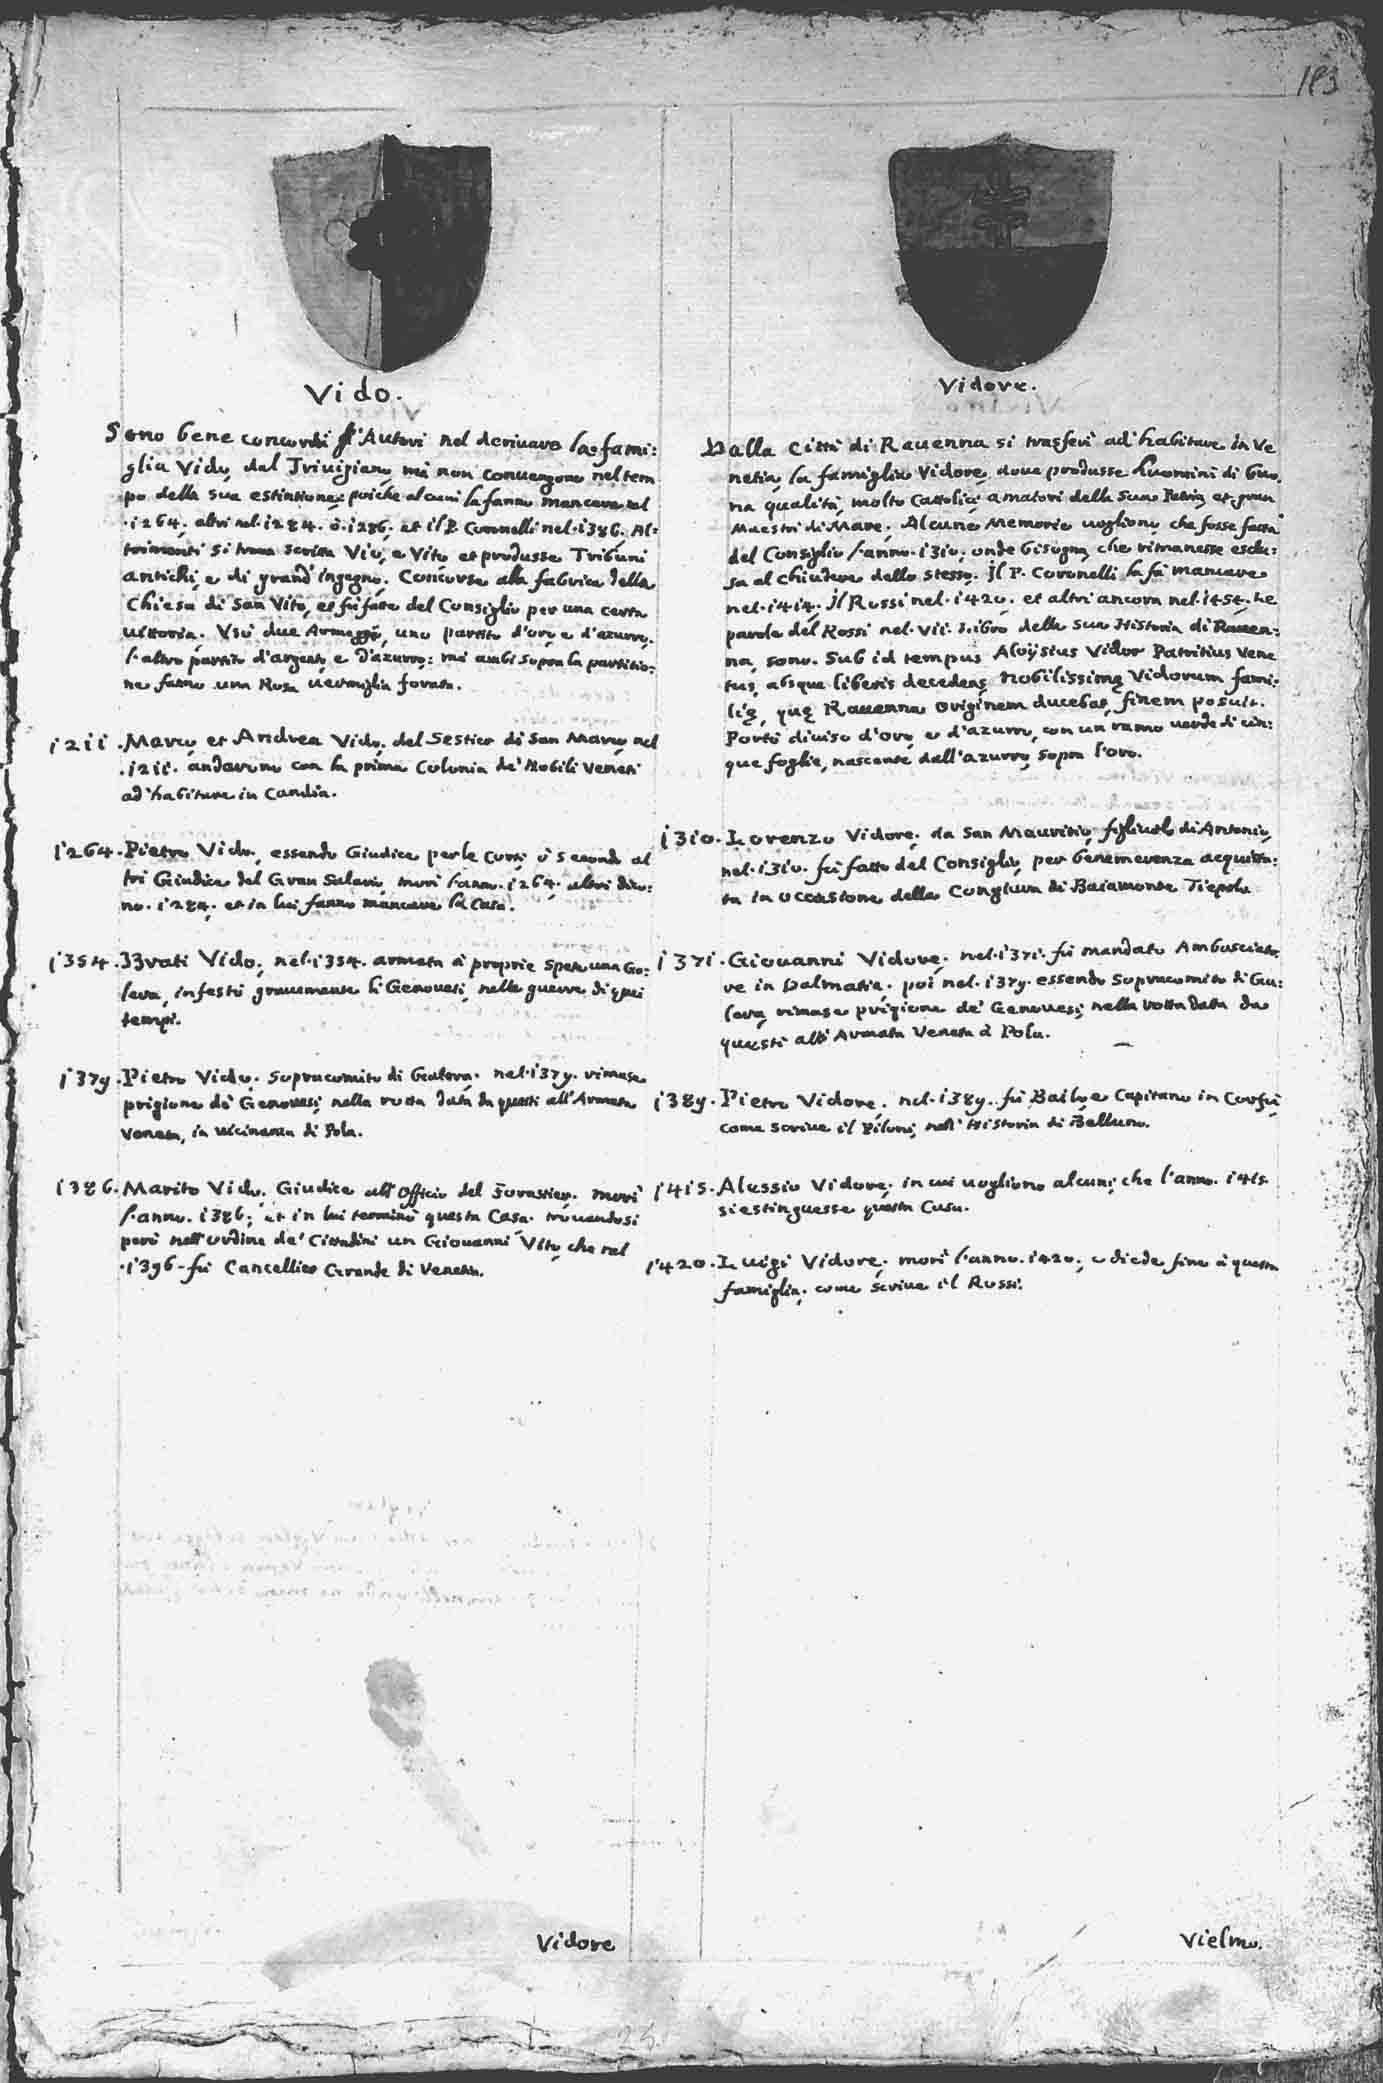 183
Vido.
Sono bene concordi gl'Autori nel deriuare la fami:
glia Vido, dal Triuigiano, mà non conuengono nel tem
po della sua estintione; poiche alcuni la fanno mancare nel
.1264. altri nel.1284. ò.1286. et il P. Coronelli nel.1386. Al:
trimenti si troua scritta Vio, e Vito et produsse Tribuni
antichi, e di grand'ingegno. Concorse alla fabrica della
Chiesa di San Vito, et fù fatta del Consiglio per una certa
uittoria. Vsò due Armeggi, uno partito d'oro, e d'azurro.
l'altro partito d'argento, e d'azurro: mà ambi sopra la partitio:
ne fanno una Rosa uermiglia forata.
1211. Marco et Andrea Vido. del Sestier di San Marco, nel
.1211. andarono con la prima Colonia de' Nobili Veneti
ad habitare in Candia.
1264. Pietro Vido, essendo Giudice per le Corti, ò secondo al
tri Giudice del Gran Salario, morì l'anno.1264. altri dico:
no.1284. et in lui fanno mancare la Casa.
1354. Vido, nel.1354. armata à proprie spese una Ga:
lera, infestò grauemente li Genouesi, nelle guerre di quei
tempi.
1379. Pietro Vido. Sopracomito di Galera. nel.1379. rimase
prigione de' Genouesi, nella rotta data da questi all'Armata
Veneta, in uicinanza di Pola.
1386. Marito Vido. Giudice all'Officio del Forastier. morì
l'anno.1386; et in lui terminò questa Casa. trouandosi
però nell'ordine de' Cittadini un Giouanni Vito, che nel
.1396. fù Cancellier Grande di Venetia.
Vidore
Vidore.
Dalla Città di Rauenna si trasferì ad habitare in Ve
netia, la famiglia Vidore, doue produsse huomini di buo,
na qualità, molto Cattolici, amatori della sua Patria, et gran
Maestri di Mare. Alcune Memorie uogliono, che fosse fatta
del Consiglio l'anno.1310; onde bisogna, che rimanesse esclu:
sa al chiudere dello stesso. Il P. Coronelli la fà mancare
nel.1414. Il Rossi nel.1420. et altri ancora nel.1454. Le
parole del Rossi nel.VII. Libro della sua Historia di Rauen:
na, sono. Sub id tempus Aloÿsius Vidor Patritius Vene
tus, absque liberis decedens, Nobilissimę Vidorum fami:
lię, quę Rauenna originem ducebat, finem posuit.
Portò diuiso d'oro, e d'azurro, con un ramo uerde di cin:
que foglie, nascente dall'azurro, sopra l'oro.
1310. Lorenzo Vidore. da San Mauritio, figliuolo di Antonio,
nel.1310. fù fatto del Consiglio, per benemerenza acquista:
ta in occasione della Congiura di Baiamonte Tiepolo
1371. Giouanni Vidore. nel.1371. fù mandato Ambasciato
re in Dalmatia. poi nel.1379. essendo Sopracomito di Ga:
lera, rimase prigione de' Genouesi, nella rotta data da
questi all'Armata Veneta à Pola.
1389. Pietro Vidore. nel.1389. fù Bailo, e Capitano in Corfù,
come scriue il Piloni, nell'Historia di Belluno.
1415. Alessio Vidore. in cui uogliono alcuni, che l'anno.1415.
si estinguesse questa Casa.
1420. Luigi Vidore. morì l'anno.1420. e diede fine à questa
famiglia, come scriue il Rossi.
Vielmo.